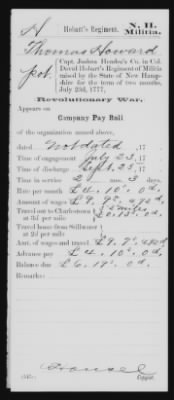 H | Hobart's Regiment. | N. H. Militia.
Thomas Howard
Capt. Joshua Hendee's Co. in Col.
David Hobart's Regiment of Militia
raised by the State of New Hamp-
shire for the term of two months,
July 23d, 1777,
Revolutionary War.
Appears on
Company Pay Roll
of the organization named above,
dated Not dated, 17 .
Time of engagement July 23, 17 .
Time of discharge Sept. 25, 17 .
Time in service 2 m. 3 days.
Rate per month £4. 10s. 0d.
Amount of wages £9. 9s.
Travel out to Charlestown
at 3d per mile
Travel home from Stillwater
at 2d per mile
Amt. of wages and travel £9. 9s.
Advance pay £4. 10s. 0d.
Balance due £6. 19s. 0d.
Remarks:
Copyist.